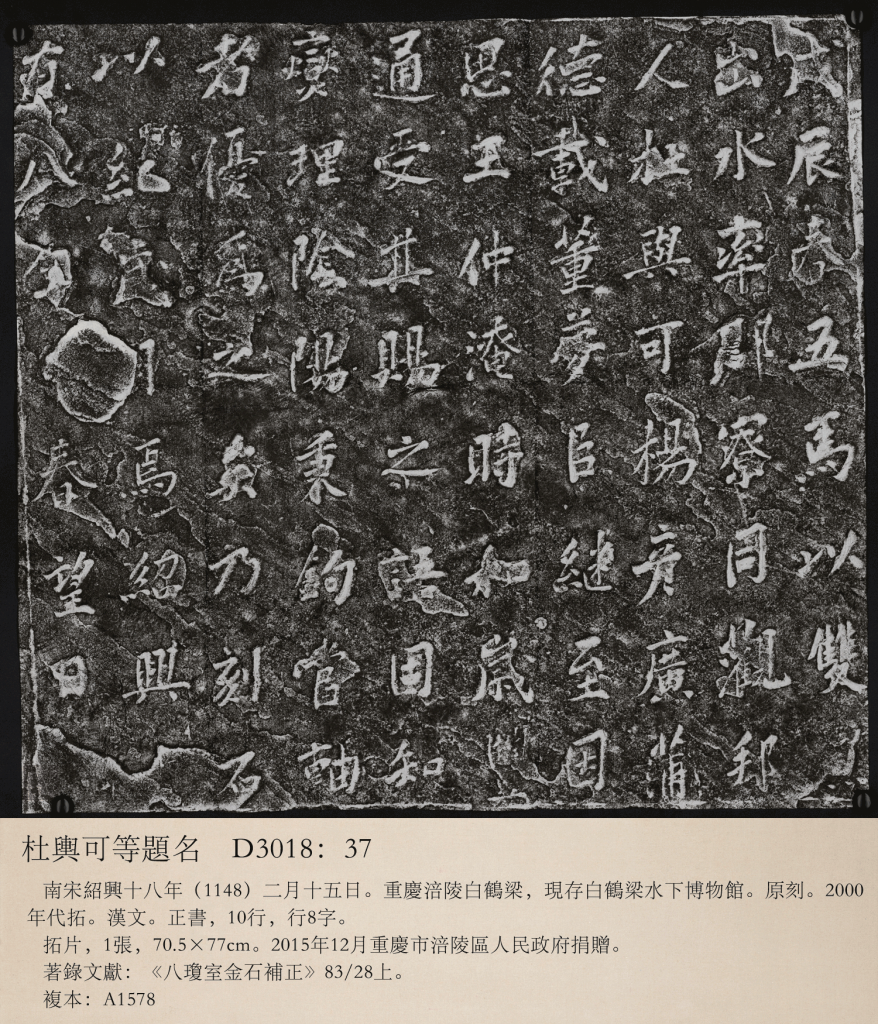 戊辰春五馬以雙
出水率郡寮同觀邦
人杜與可楊彥廣蒲
德載董夢臣繼至因
思王仲淹時和歲豐
通受其賜之語固知
燮理陰陽秉鈞當軸
者優爲之矣乃刻石
以紀月焉紹興
有八年春望日
杜輿可等題名 D3018：37
南宋紹興十八年（1148）二月十五日。重慶涪陵白鶴梁，現存白鶴梁水下博物館。原刻。2000
年代拓。漢文。正書，10行，行8字。
拓片，1張，70.5×77cm。2015年12月重慶市涪陵區人民政府捐贈。
著錄文獻：《八瓊室金石補正》83/28上。
複本：A1578